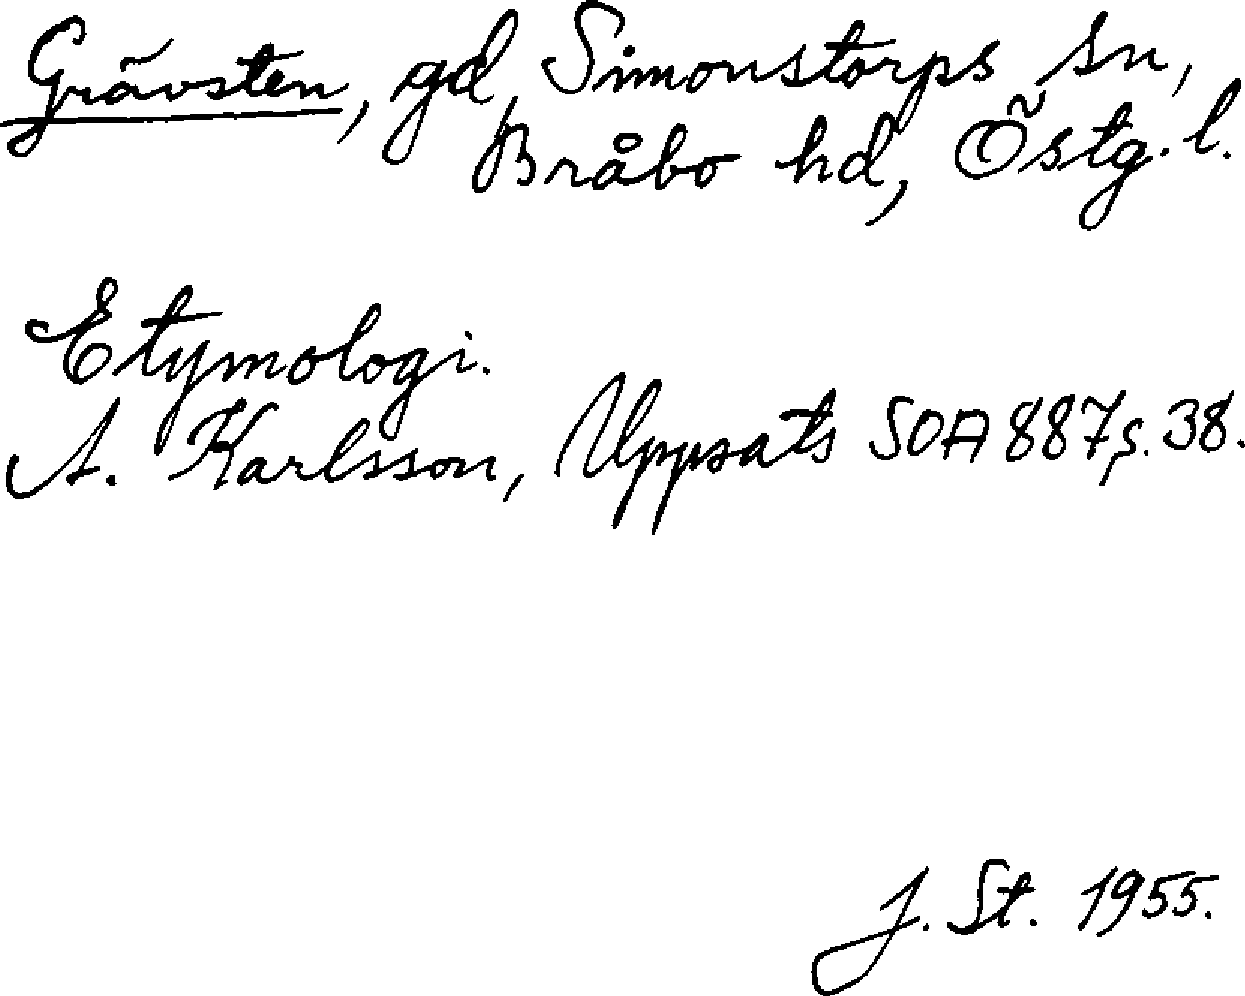 Grävsten, gd, Simonstorps sn,
Bråbo hd, Östg. l.
Etymologi.
A. Karlsson, Uppsats SOA 887, s. 38.
J. St. 1955.